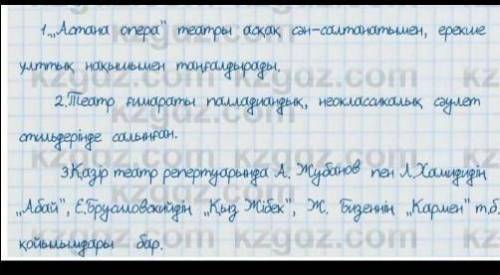 1. „Астана опера" театры асқақ сән-салтанатымен, ерекше
ұлттық нақышымен таңғалдырады.
2. Театр ғимараты палладиандық, неоклассикалық сәулет
стильдерінде салынған.
3. Қазір театр репертуарында А. Жубанов пен Л. Хамидидің
„Абай", Е. Брусиловскийдің „Қыз Жібек", Ж. Бизенің „Кармен" т.б.
қойылымдары бар.
kzgdz.com